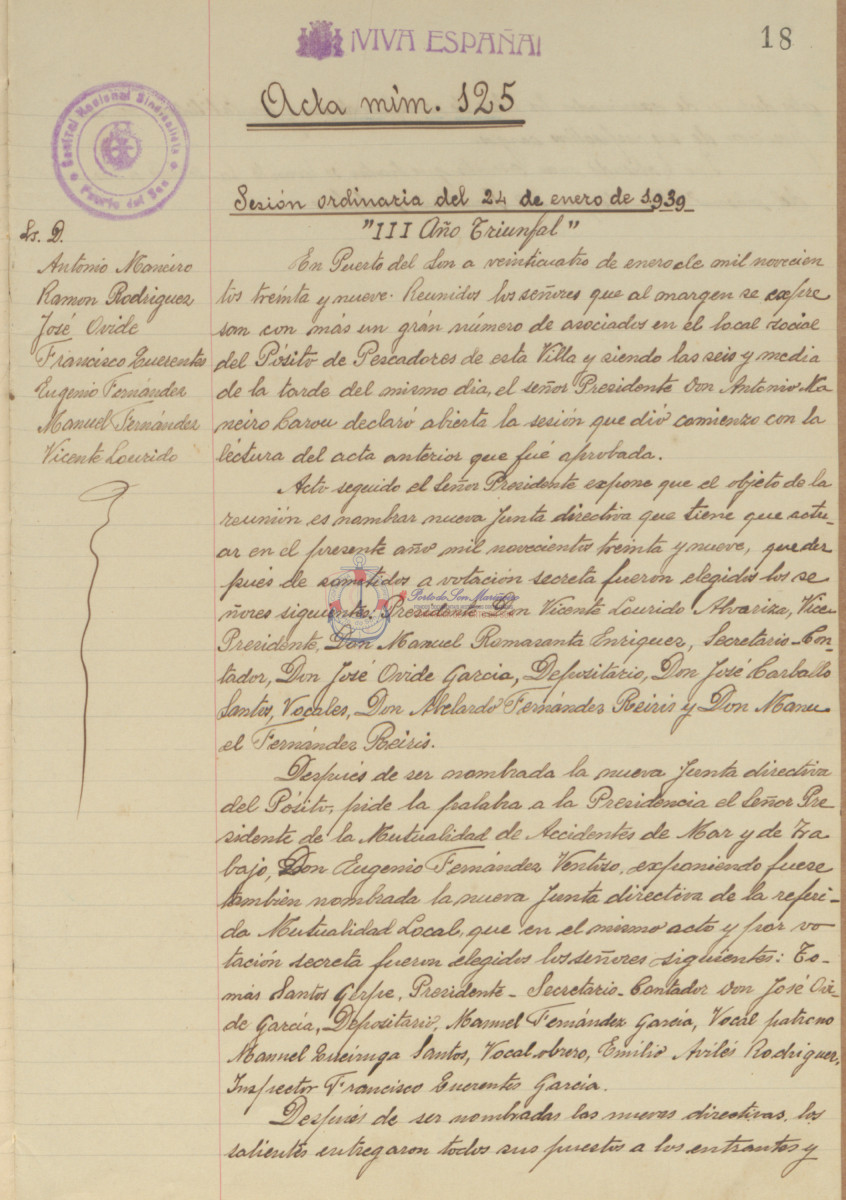 ¡VIVA ESPAÑA!
18
Acta núm. 125
Central Nacional Sindicalista
Puerto del Son
Sesión ordinaria del 24 de enero de 1939
"III Año Triunfal"
Ss. D.
Antonio Maneiro
Ramon Rodriguez
José Ovide
Francisco Querentes
Eugenio Fernández
Manuel Fernández
Vicente Lourido
En Puerto del Son a veinticuatro de enero de mil novecien
tos treinta y nueve. Reunidos los señores que al margen se expre
san con más un grán número de asociados en el local social
del Pósito de Pescadores de esta Villa y siendo las seis y media
de la tarde del mismo dia, el señor Presidente Don Antonio Ma
neiro Carou declaró abierta la sesión que dió comienzo con la
léctura del acta anterior que fué aprobada.
Acto seguido el Señor Presidente expone que el objeto de la
reunión es nombrar nueva Junta directiva que tiene que actu-
ar en el presente año mil novecientos treinta y nueve, que des
pués de sometidos a votación secreta fueron elegidos los se
ñores siguientes: Presidente Don Vicente Lourido Alvarize, Vice
Presidente, Don Manuel Romasanta Enriquez, Secretario-Con-
tador, Don José Ovide Garcia, Depositario, Don José Carballo
Santos, Vocales, Don Abelardo Fernández Reiris y Don Manu
el Fernández Reiris.
Después de ser nombrada la nueva Junta directiva
del Pósito, pide la palabra a la Presidencia el Señor Pre
sidente de la Mutualidad de Accidentes de Mar y de Tra
bajo, Don Eugenio Fernández Ventoso, exponiendo fuere
tambien nombrada la nueva Junta directiva de la referi-
da Mutualidad Local, que en el mismo acto y por vo
tación secreta fueron elegidos los señores siguientes: To-
más Santos Gerpe, Presidente - Secretario-Contador Don José Ovi-
de García, Depositario, Manuel Fernández García, Vocal patrono
Manuel Queiruga Santos, Vocal obrero, Emilio Avilés Rodriguez,
Inspector Francisco Querentes Garcia.
Después de ser nombradas las nuevas directivas, los
salientes entregaron todos sus puestos a los entrantes y
Porto do Son Mariñeiro